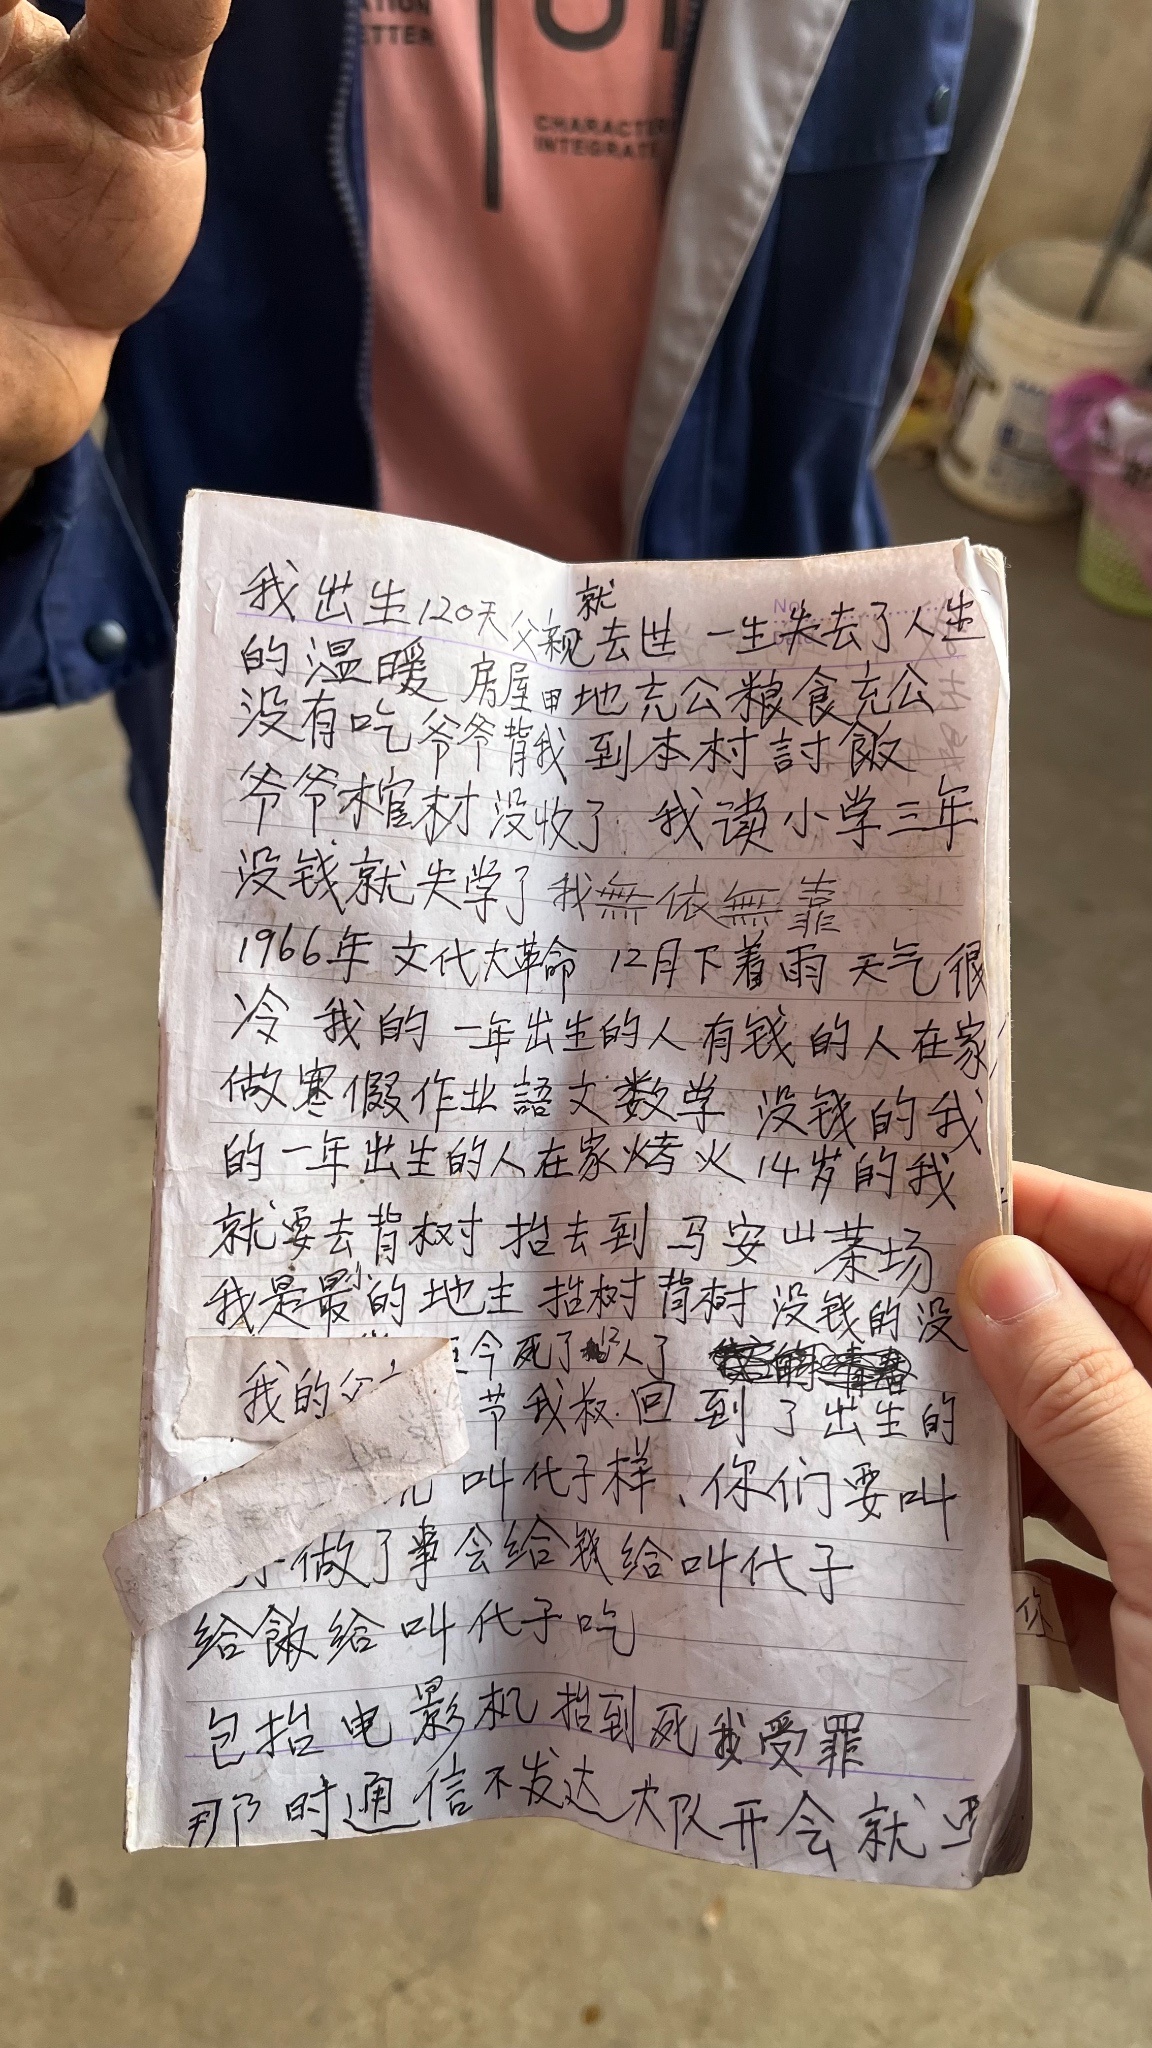 ETTER
CHARACTER
INTEGRATI
No
我出生120天父親就去世 一生失去了人生
的温暖 房屋田地充公粮食充公
没有吃爷爷背我到本村討飯
爷爷棺材没收了 我读小学三年
没钱就失学了我無依無靠
1966年文代大革命 12月下着雨天气很
冷 我的一年出生的人有钱的人在家
做寒假作业語文数学 没钱的我
的一年出生的人在家烤火14岁的我
就要去背树 抬去到马安山茶场
我是最小的地主 抬树背树没钱的没
今死了12人了
我的父
节我叔回到了出生的
叫代子样、你们要叫
做了事会给钱给叫代子
给飯给叫代子吃
包抬电影机抬到死我受罪
那时通信不发达大队开会就
你